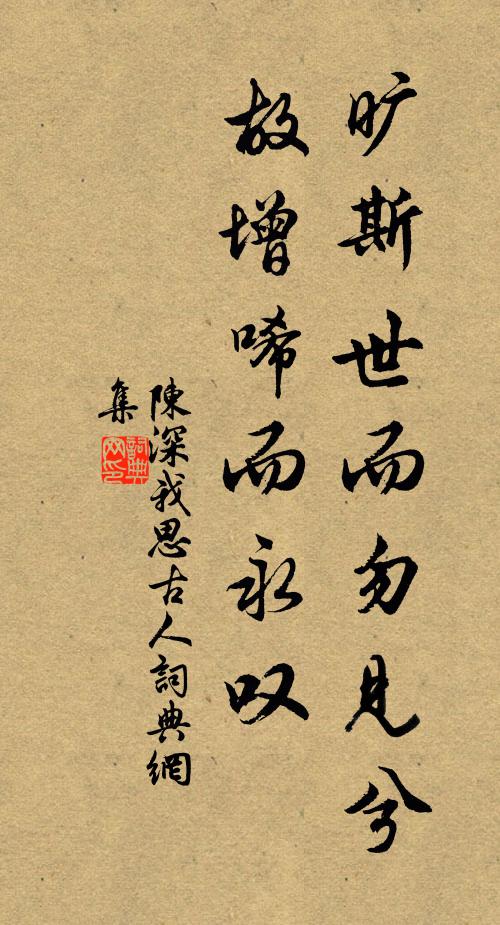 旷斯世而勿見兮
故增唏而永叹
陳深我思古人詞典網
集
詞典网印